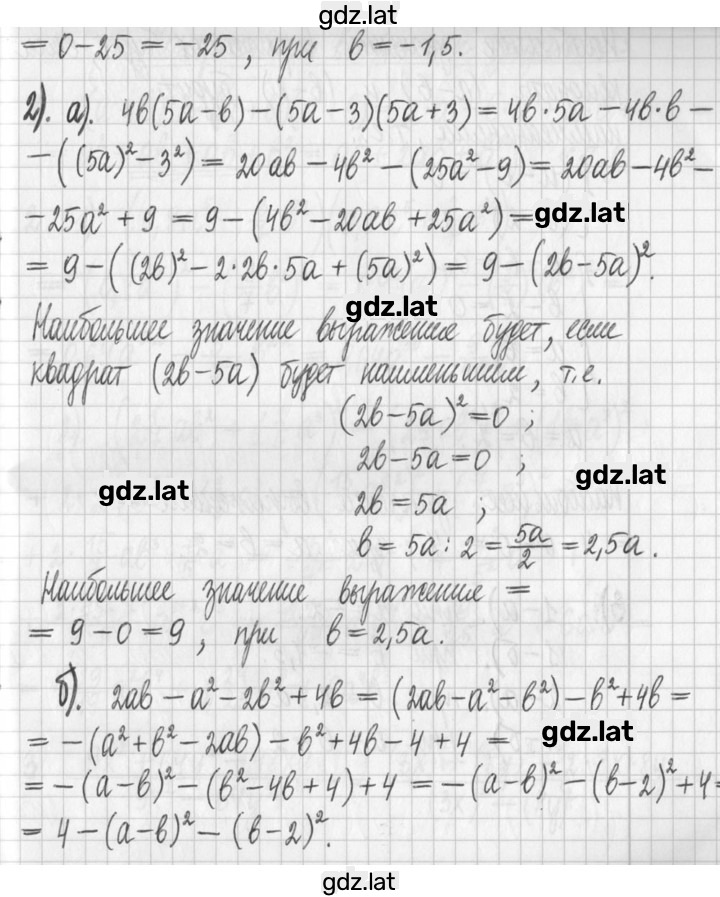 gdz.lat
= 0 − 25 = −25 , при в = −1,5.
2). а). 4в(5а − в) − (5а − 3)(5а + 3) = 4в·5а − 4в·в −
− ((5а)² − 3²) = 20ав − 4в² − (25а² − 9) = 20ав − 4в² −
− 25а² + 9 = 9 − (4в² − 20ав + 25а²) = gdz.lat
= 9 − ((2в)² − 2·2в·5а + (5а)²) = 9 − (2в − 5а)².
gdz.lat
Наибольшее значение выражение будет, если
квадрат (2в − 5а) будет наименьшим, т.е.
(2в − 5а)² = 0 ;
2в − 5а = 0 ; gdz.lat
gdz.lat 2в = 5а ;
в = 5а : 2 = 5а/2 = 2,5а.
Наибольшее значение выражение =
= 9 − 0 = 9 , при в = 2,5а.
б). 2ав − а² − 2в² + 4в = (2ав − а² − в²) − в² + 4в =
= −(а² + в² − 2ав) − в² + 4в − 4 + 4 = gdz.lat
= −(а − в)² − (в² − 4в + 4) + 4 = −(а − в)² − (в − 2)² + 4 =
= 4 − (а − в)² − (в − 2)².
gdz.lat